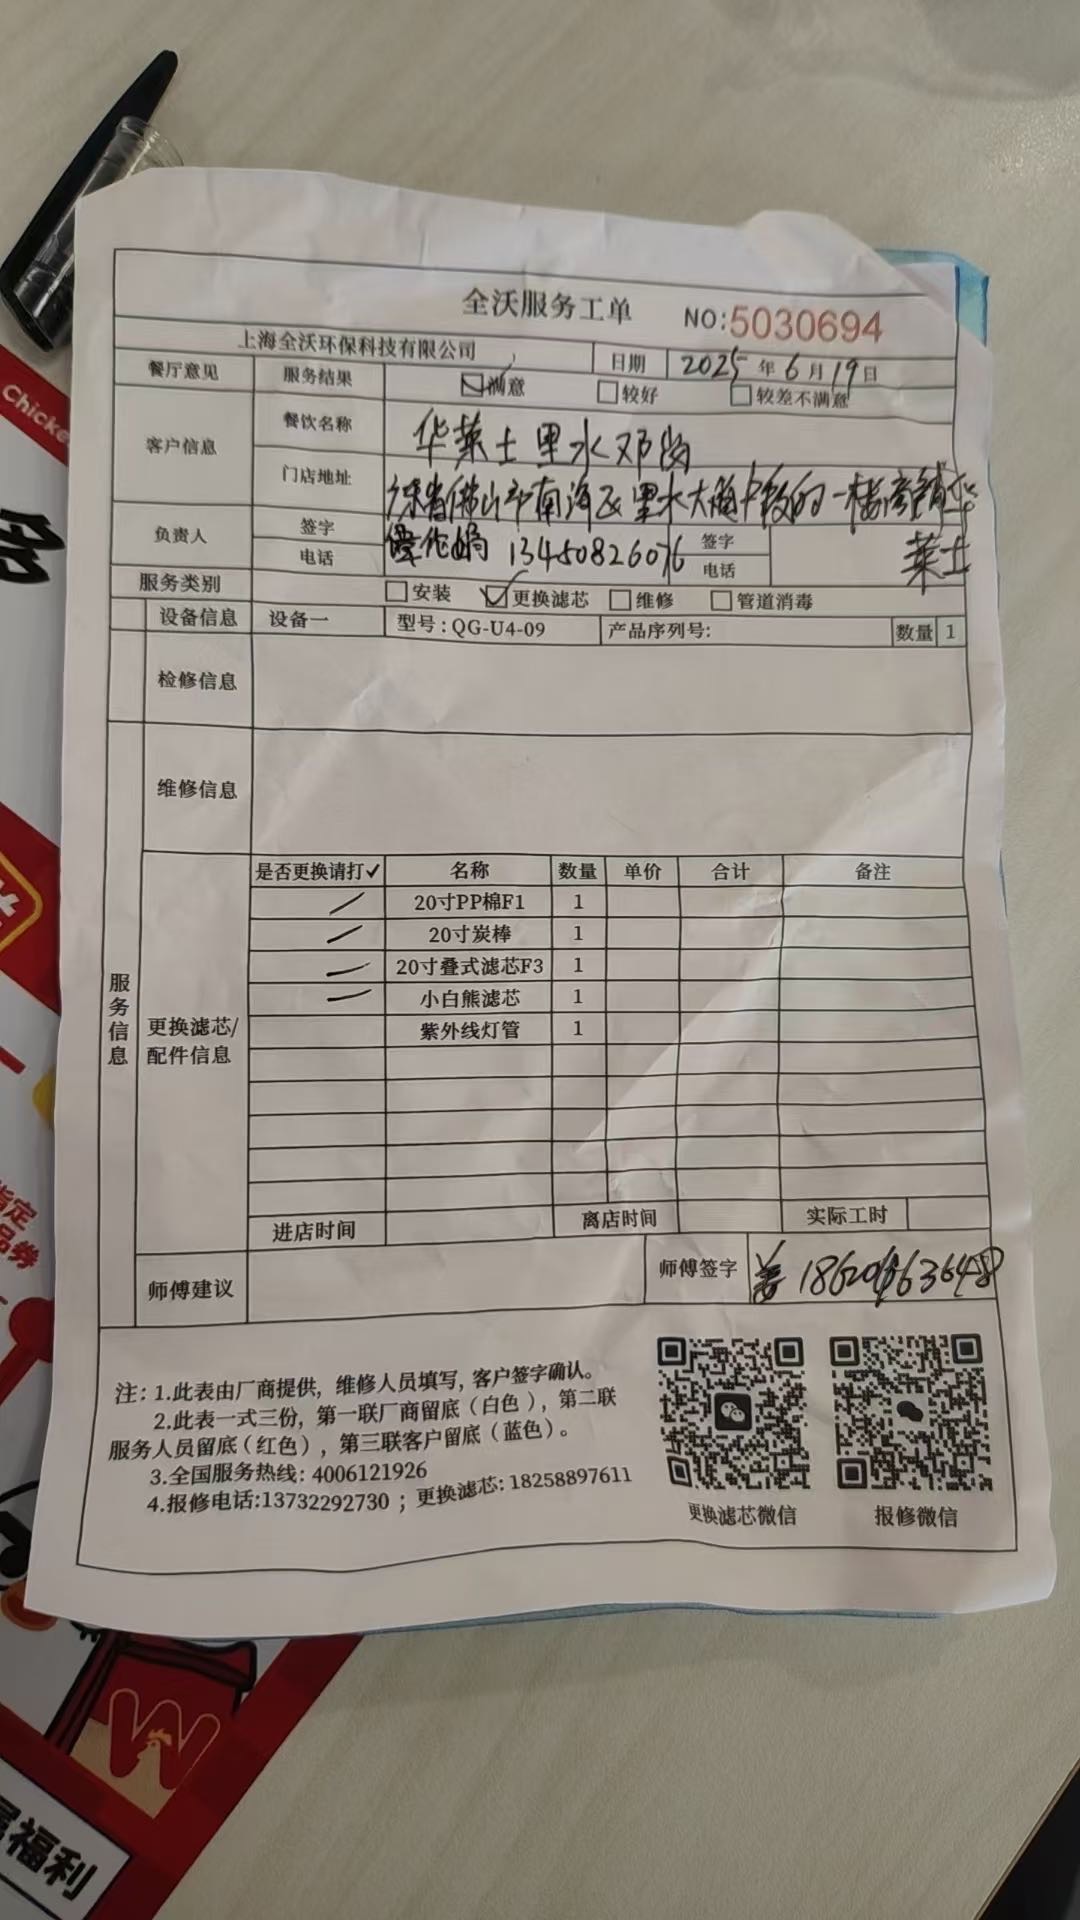 全沃服务工单
NO:5030694
上海全沃环保科技有限公司 日期 2025年6月19日
餐厅意见 服务结果 满意 较好 较差不满意
客户信息 餐饮名称 华莱士里水邓岗
门店地址 广东省佛山市南海区里水大道中段的一楼商铺华莱士
负责人 签字 电话 13450826076 签字 电话
服务类别 安装 更换滤芯 维修 管道消毒
设备信息 设备一 型号:QG-U4-09 产品序列号: 数量 1
检修信息
维修信息
服务信息
更换滤芯/配件信息
是否更换请打✓ 名称 数量 单价 合计 备注
20寸PP棉F1 1
20寸炭棒 1
20寸叠式滤芯F3 1
小白熊滤芯 1
紫外线灯管 1
进店时间 离店时间 实际工时
师傅建议 师傅签字
注: 1.此表由厂商提供, 维修人员填写, 客户签字确认。
2.此表一式三份, 第一联厂商留底(白色), 第二联
服务人员留底(红色), 第三联客户留底(蓝色)。
3.全国服务热线: 4006121926
4.报修电话:13732292730 ; 更换滤芯: 18258897611
更换滤芯微信 报修微信
Chicke
指定
品券
福利